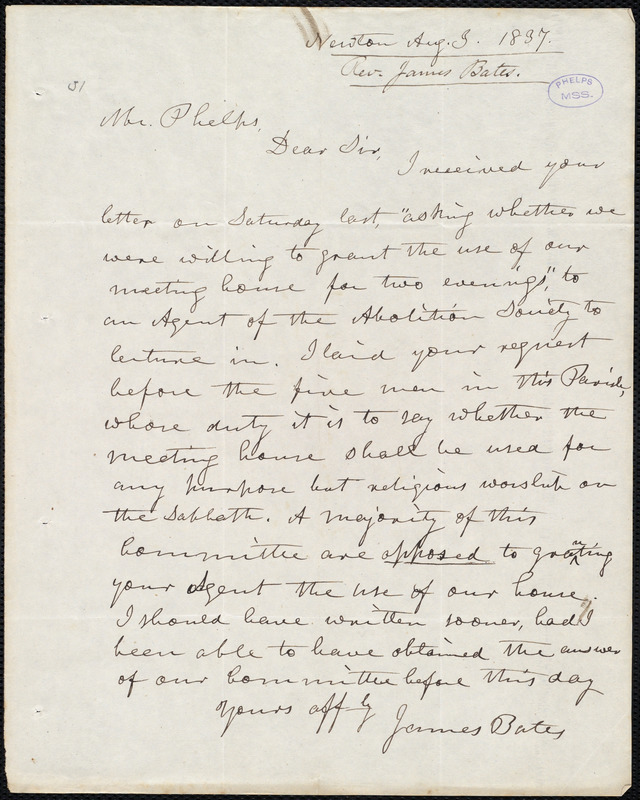 Newton Aug. 3. 1837.
Rev. James Bates.
PHELPS
MSS.
51
Mr. Phelps,
Dear Sir,
I received your
letter on Saturday last, "asking whether we
were willing to grant the use of our
meeting house for two evenings", to
an Agent of the Abolition Society to
lecture in. I laid your request
before the five men in this Parish,
whose duty it is to say whether the
meeting house shall be used for
any purpose but religious worship on
the Sabbath. A majority of this
Committee are opposed to granting
your Agent the use of our house.
I should have written sooner, had I
been able to have obtained the answer
of our Committee before this day
Yours aff ly
James Bates